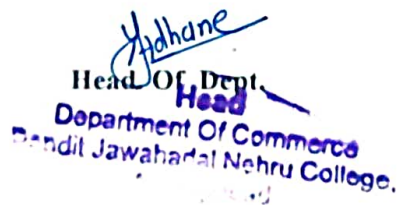 Head Of Dept.
Head
Department Of Commerce
Pandit Jawaharlal Nehru College,